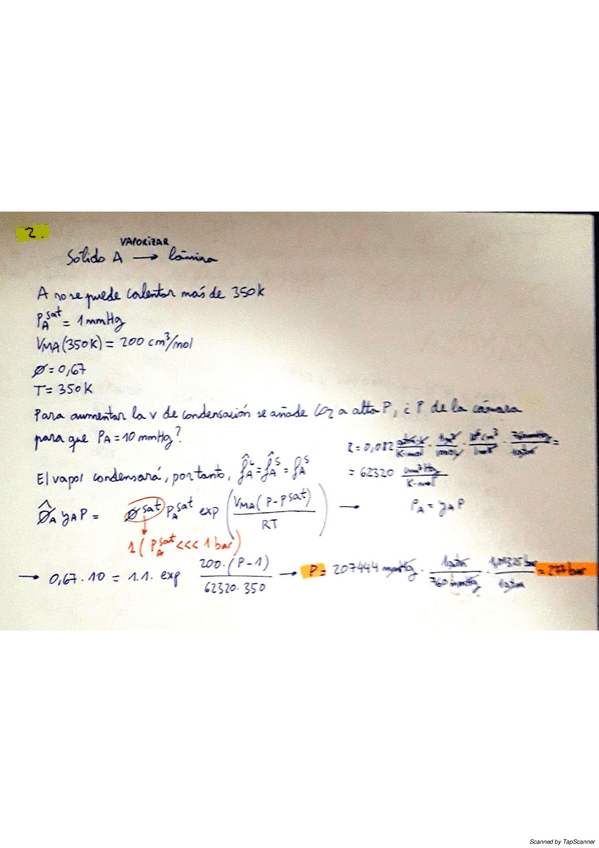 2.
VAPORIZAR
Sólido A → lámina
A no se puede calentar más de 350K
P_A^sat = 1 mmHg
V_MA (350K) = 200 cm³/mol
Ø = 0,67
T = 350 K
Para aumentar la v de condensación se añade CO2 a alta P, ¿P de la cámara
para que P_A = 10 mmHg?
R = 0,082
= 62320 cm³ Hg / K·mol
El vapor condensará, por tanto, f̂_A^L = f̂_A^S = f_A^S
Ø̂_A y_A P = Ø^sat P_A^sat exp (V_MA (P - P^sat) / RT) → P_A = y_A P
1 (P_A^sat <<< 1 bar)
→ 0,67 · 10 = 1·1 · exp 200·(P-1) / 62320·350 → P = 207444 mmHg · 1 atm / 760 mmHg · 1,01325 bar / 1 atm = 277 bar
Scanned by TapScanner